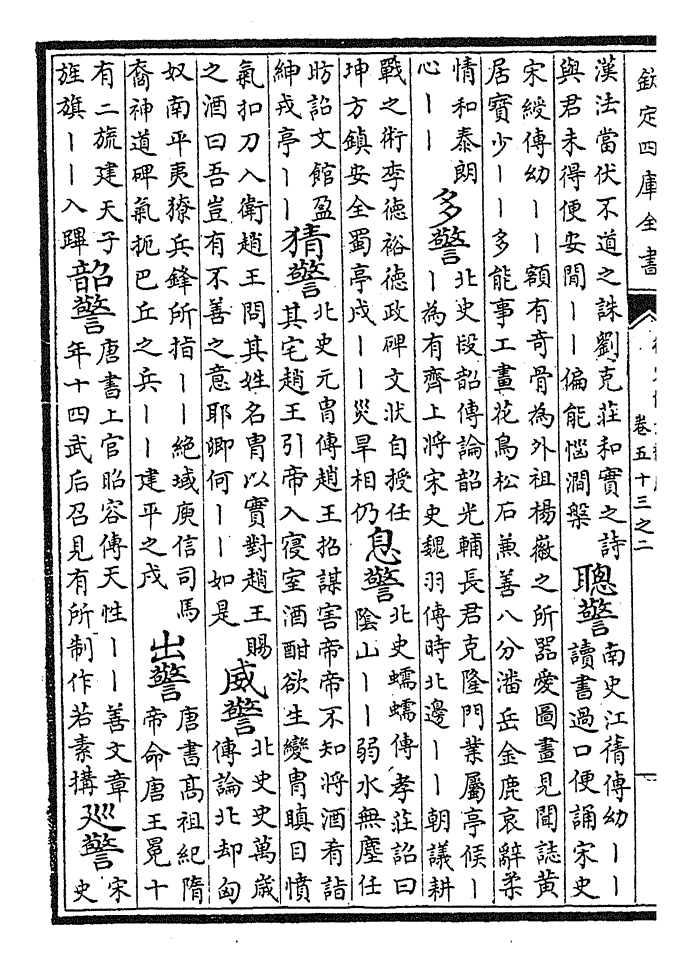 欽定四庫全書
卷五十三之二
漢法當伏不道之誅劉克莊和實之詩
與君未得便安閒丨丨偏能惱澗槃
聰警
南史江蒨傳幼丨丨
讀書過口便誦宋史
宋綬傳幼丨丨額有奇骨為外祖楊徽之所器愛圖畫見聞誌黄
居寶少丨丨多能事工畫花鳥松石兼善八分潘岳金鹿哀辭柔
情和泰朗
心丨丨
多警
北史段韶傳論韶光輔長君克隆門業屬亭候丨
丨為有齊上將宋史魏羽傳時北邊丨丨朝議耕
戰之術李德裕德政碑文狀自授任
坤方鎮安全蜀亭戍丨丨災旱相仍
息警
北史蠕蠕傳孝莊詔曰
陰山丨丨弱水無塵任
昉詔文館盈
紳戎亭丨丨
猜警
北史元胄傳趙王招謀害帝帝不知將酒肴詣
其宅趙王引帝入寢室酒酣欲生變胄瞋目憤
氣扣刀入衛趙王問其姓名胄以實對趙王賜
之酒曰吾豈有不善之意耶卿何丨丨如是
威警
北史史萬歳
傳論北却匈
奴南平夷獠兵鋒所指丨丨絶域庾信司馬
裔神道碑氣扼巴丘之兵丨丨建平之戍
出警
唐書高祖紀隋
帝命唐王冕十
有二旒建天子
旌旗丨丨入蹕
韶警
唐書上官昭容傳天性丨丨善文章
年十四武后召見有所制作若素搆
巡警
宋
史